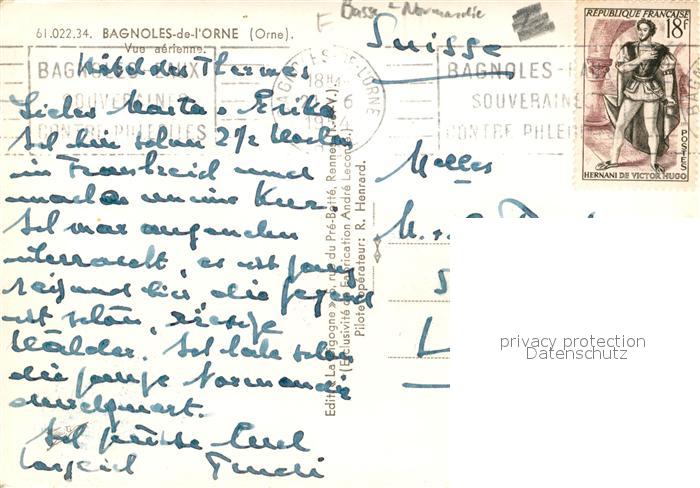 61.022.34. BAGNOLES-de-l'ORNE (Orne).
Vue aérienne.
Basse-Normandie
Suisse
RÉPUBLIQUE FRANÇAISE
18F
POSTES
HERNANI DE VICTOR HUGO
BAGNOLES DE L'ORNE
18H
BAGNOLES
SOUVERAINES
CONTRE PHLEBITES
BAGNOLES
SOUVERAINES
CONTRE PHLEB
Hôtel des Thermes
Liebes Marta & Erika
Ich bin schon 2 1/2 Wochen
in Frankreich und
mache meine Kur.
Ich war angenehm
überrascht, es ist ganz
reizend hier, die Gegend
ist schön, riesige
Wälder. Ich habe schon
die ganze Normandie
durchquert.
Ich grüsse Euch
Trudi
Melles
M. &
L
Edit. « La Cigogne », rue du Pré-Botté, Rennes
(Exclusivité de Fabrication André Leconte)
Pilote-opérateur : R. Henrard.
privacy protection
Datenschutz